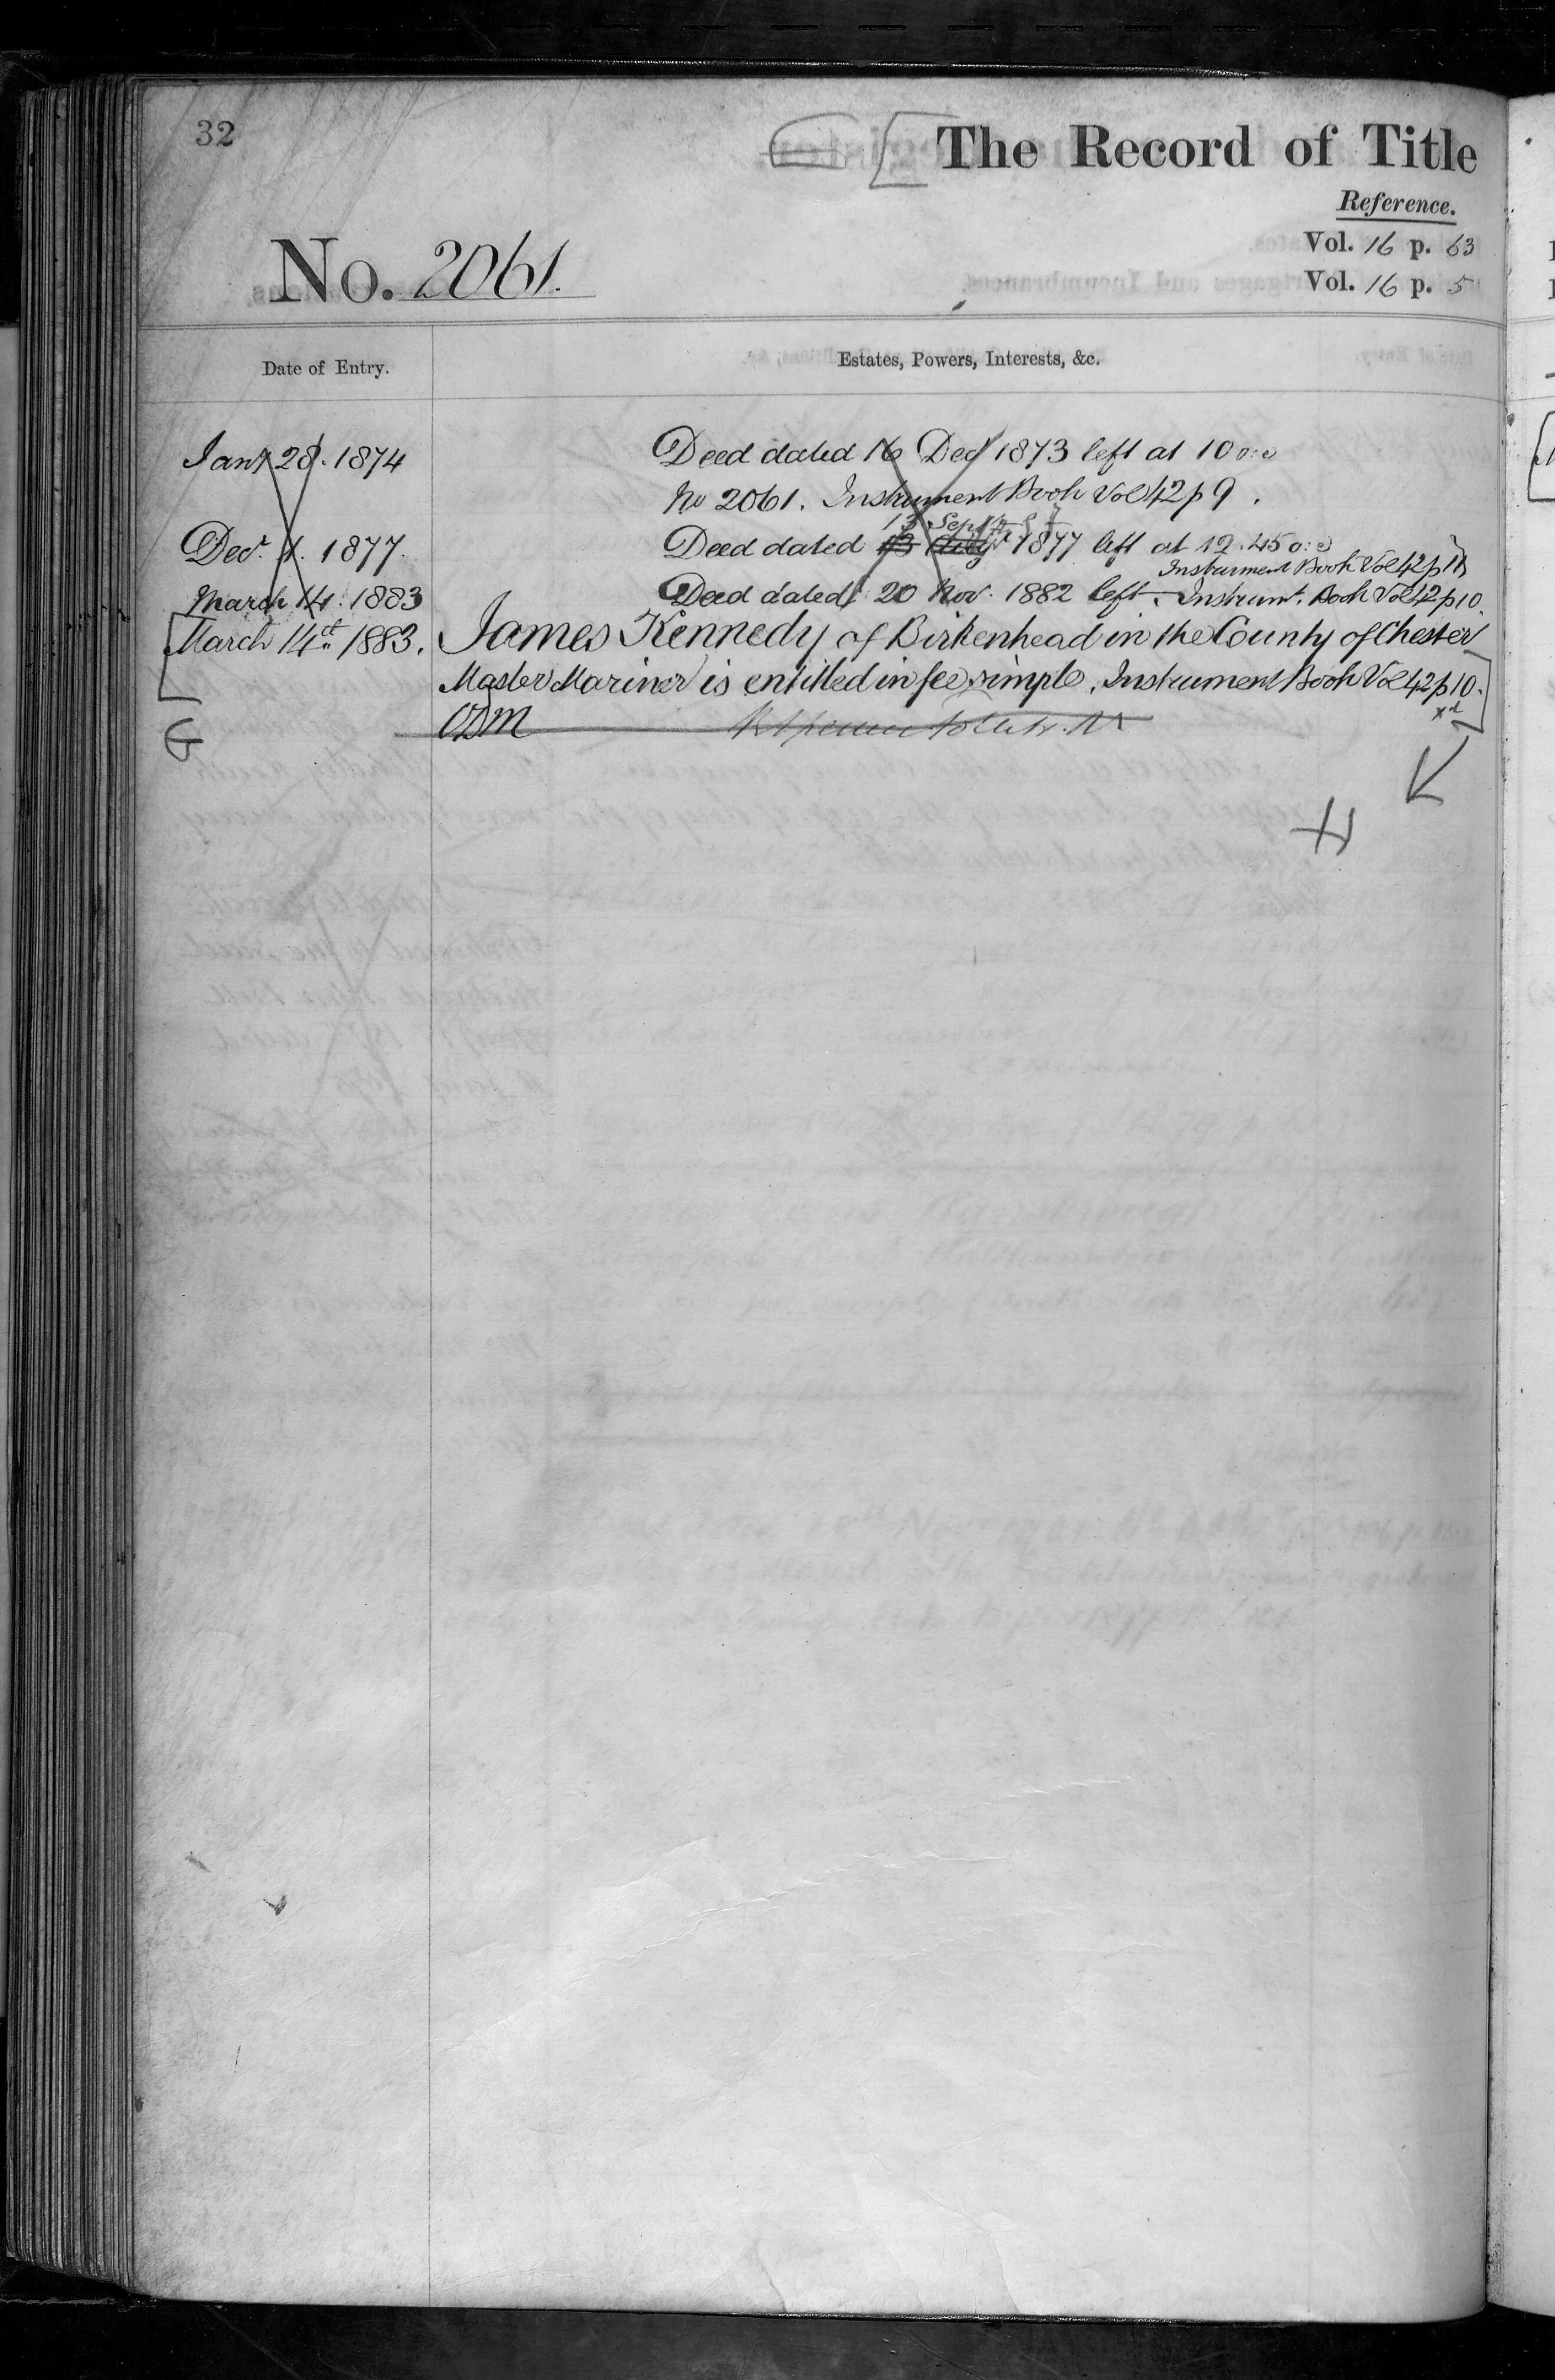 32
The Record of Title
Reference.
Vol. 16 p. 63
No. 2061.
Vol. 16 p. 5
Date of Entry.
Estates, Powers, Interests, &c.
Jany 28. 1874
Deed dated 16 Decr 1873 left at 10
No 2061. Instrument Book Vol 42 p 9.
13 Septr
Decr. 1. 1877.
Deed dated 13 1877 left at 12.45
Instrument Book Vol 42 p 11
March 14. 1883
Deed dated 20 Nov. 1882 left. Instrumt. Book Vol 42 p 10.
March 14th 1883.
James Kennedy of Birkenhead in the County of Chester
Master Mariner is entitled in fee simple. Instrument Book Vol 42 p 10.
G
H